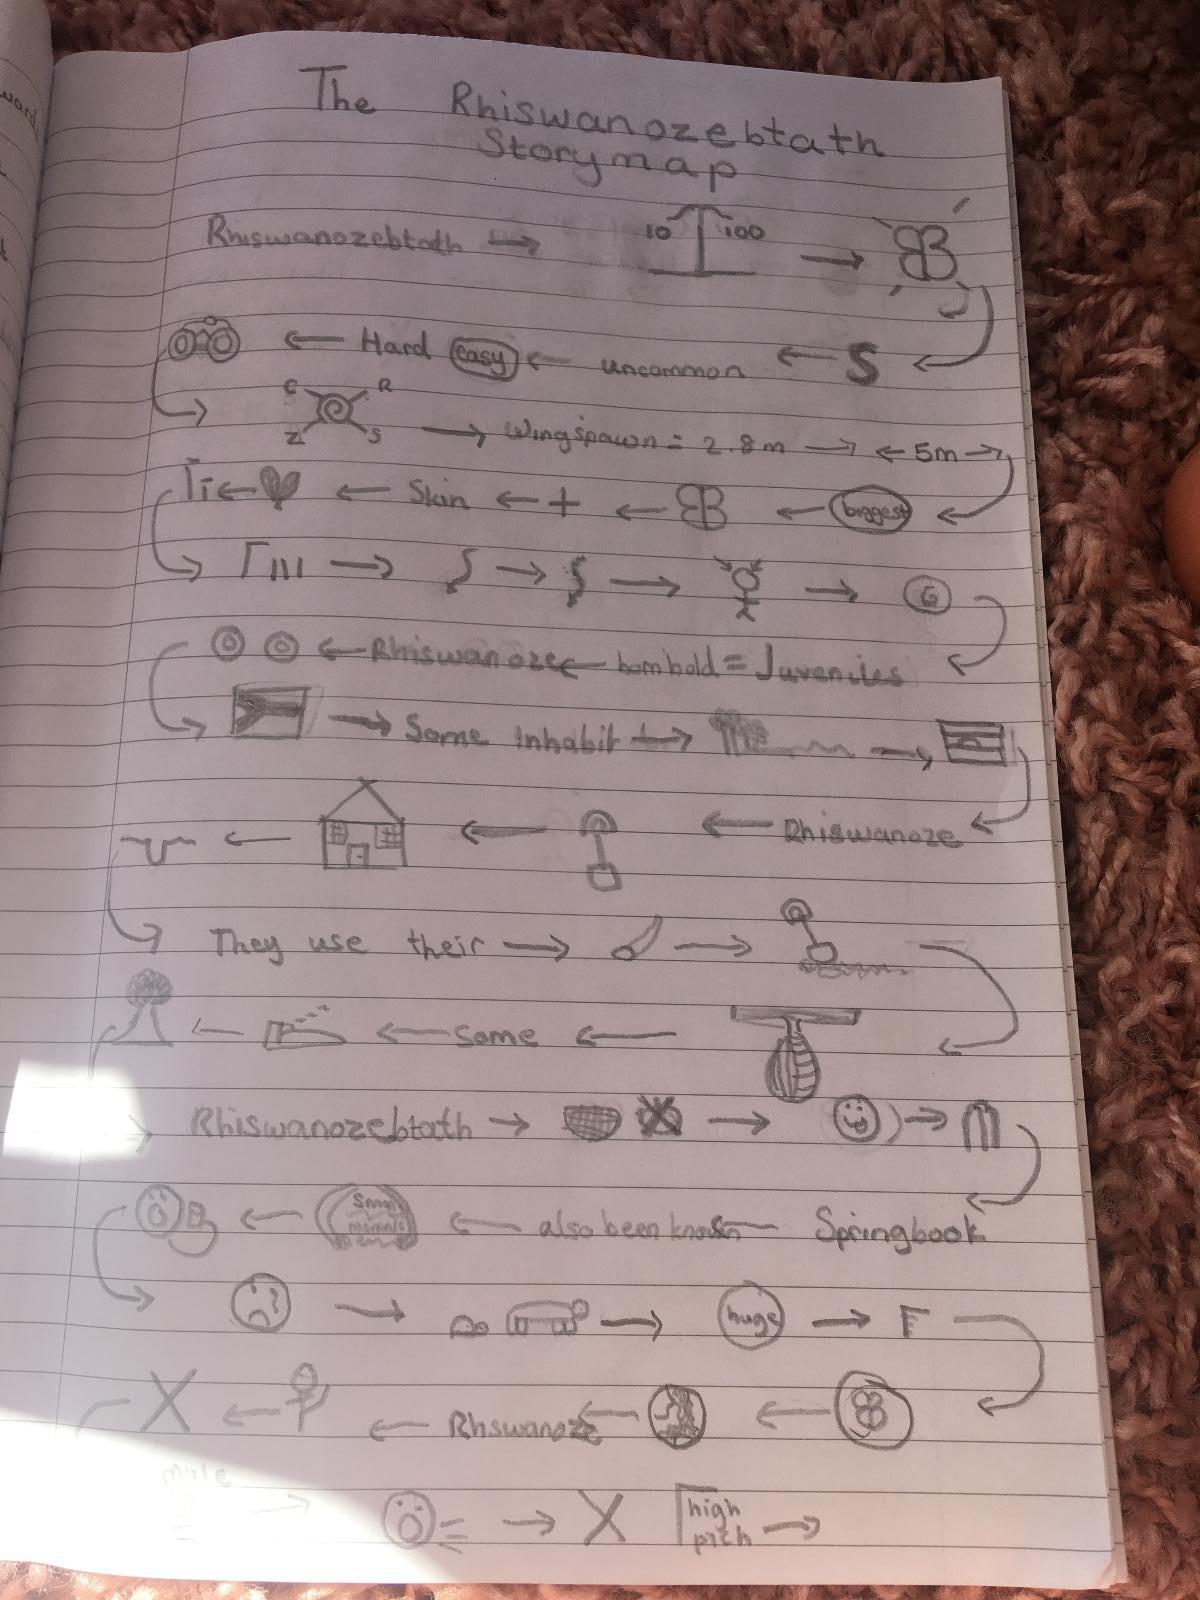 The Rhiswanozebtath
Storymap
Rhiswanozebtath → 10 100 →
Hard easy ← uncommon ← S
C R Z S → Wingspawn = 2.8m → ← 5m →
← Skin ← + ← ← biggest ←
→ → → → G
← Rhiswanoze ← bombold = Juveniles
→ Some inhabit → →
← ← ← Rhiswanoze
They use their → →
← ← Some ←
Rhiswanozebtath → → →
← Small mammals ← also been known ← Springbook
→ → huge → F
X ← ← Rhswanoze ← ←
male → → X high
pitch →